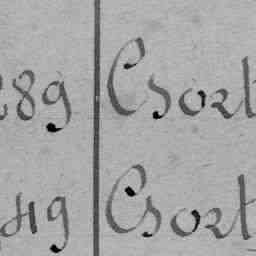 289 Csort
49 Csort